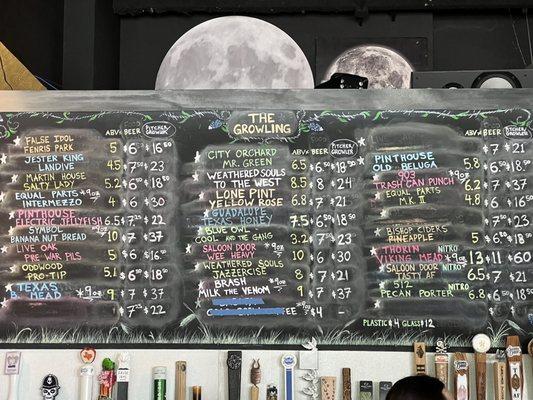 THE
GROWLING
ABV BEER PITCHER GROWLER
FALSE IDOL
FENRIS PARK 4.5 6⁵⁰ 16⁵⁰
JESTER KING
LANDIVE 4.5 7⁵⁰ 23
MARTIN HOUSE
SALTY LADY 5.2 6⁵⁰ 18⁵⁰
EQUAL PARTS
INTERMEZZO 9oz 4 6 30
PINTHOUSE
ELECTRIC JELLYFISH 6.5 7²⁵ 22
SYMBOL
BANANA NUT BREAD 10 7 37
LIVE OAK
PRE WAR PILS 5 6 18
ODDWOOD
PRO-TIP 5.1 6⁵⁰ 18⁵⁰
TEXAS
B. MEAD 9oz 9 7 37
7²⁵ 22
ABV BEER PITCHER GROWLER
CITY ORCHARD
MR. GREEN 6.5 6⁵⁰ 18⁵⁰
WEATHERED SOULS
TO THE WEST 8.5 8 24
LONE PINT
YELLOW ROSE 6.8 7 21
GUADALOUPE
TEXAS HONEY 7.5 6⁵⁰ 18⁵⁰
BLUE OWL
COOL AS THE GANG 9oz 7 23
SALOON DOOR
WEE HEAVY 9oz 10 6 30
WEATHERED SOULS
JAZZERCISE 8 7 21
BRASH
MILK THE VENOM 9oz 9 7 37
EE $4
ABV BEER PITCHER GROWLER
7 21
PINTHOUSE
OLD BELUGA 5.8 6⁵⁰ 18⁵⁰
903
TRASH CAN PUNCH 9oz 6.2 7 37
EQUAL PARTS
MK. II 4.8 6 18
7 21
BISHOP CIDERS
PINEAPPLE 5 6⁵⁰ 18⁵⁰
THORIN
VIKING MEAD NITRO 9oz 13.5 11 60
SALOON DOOR
TASTY AF NITRO 8 7 21
512
PECAN PORTER NITRO 6.8 6⁵⁰ 18⁵⁰
PLASTIC $4 GLASS $12